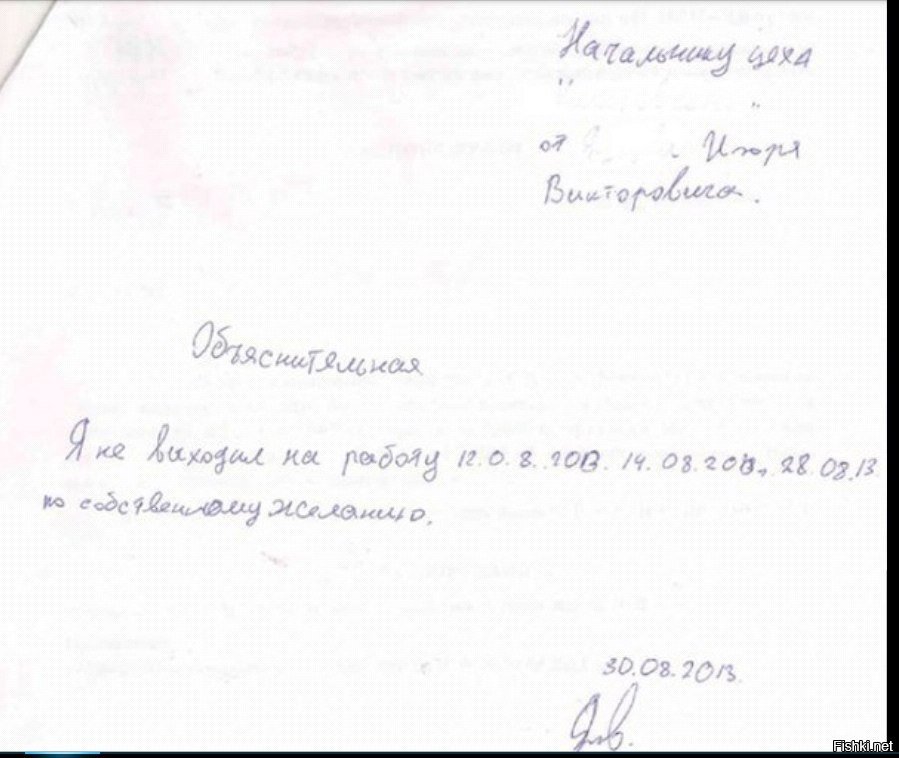 Начальнику цеха
" "
от Игоря
Викторовича.
Объяснительная
Я не выходил на работу 12.0.8.2013. 14.08.2013, 28.08.13
по собственному желанию.
30.08.2013.
Fishki.net